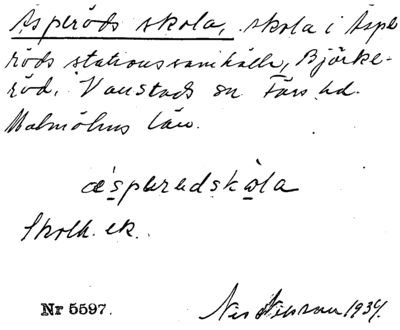 Äsperöds skola, skola i Äspe
röds stationssamhälle, Björke-
röd, Vanstads sn Färs hd.
Malmöhus län.
æsperadskola
Skolk. ek.
Nr 5597. Nils Nilsson 1934.